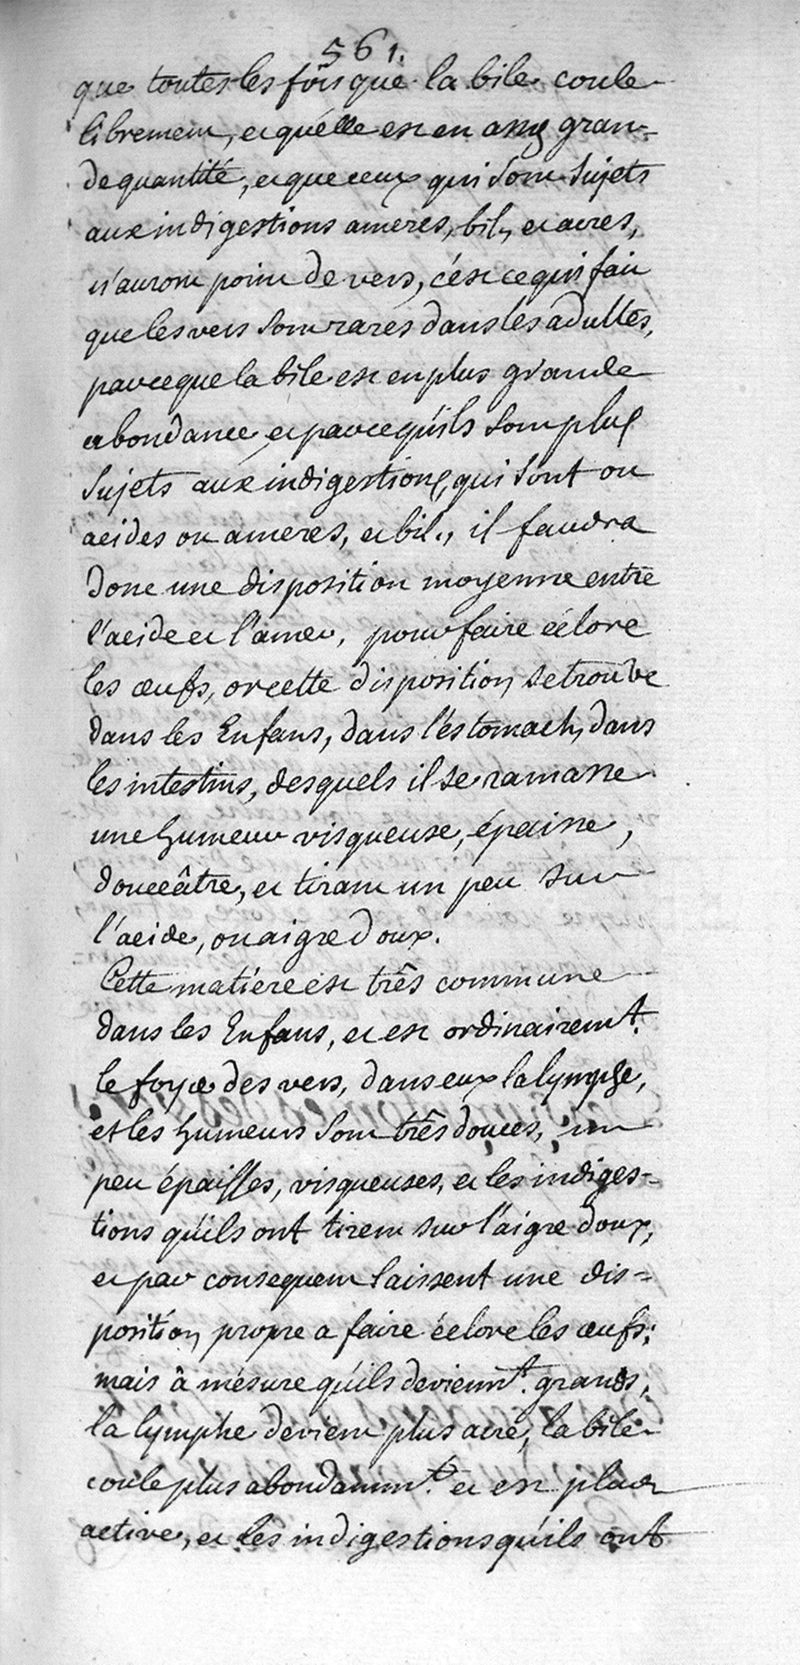 561.
que toutes les fois que la bile coule
librement, et quélle est en assez gran=
de quantité, et que ceux qui sont sujets
aux indigestions ameres, bil., et acres,
n'auront point de vers, c'ést ce qui fait
que les vers sont rares dans les adultes,
parceque la bile est en plus grande
abondance et parcequ'ils sont plus
sujets aux indigestions, qui sont ou
acides ou ameres, et bil., il faudra
donc une disposition moyenne entre
l'acide et l'amer, pour faire éclore
les œufs, or cette disposition se trouve
dans les Enfans, dans l'éstomach, dans
les intestins, desquels il se ramasse
une humeur visqueuse, épaisse,
douceâtre, et tirant un peu sur
l'acide, ou aigre doux.
Cette matiere est três commune
dans les Enfans, et est ordinairemt.
le foyer des vers, dans eux la lymphe,
et les humeurs sont três douces, un
peu épaisses, visqueuses, et les indiges=
tions qu'ils ont tirent sur l'aigre doux,
et par consequent laissent une dis=
position propre a faire éclore les œufs;
mais â mésure qu'ils deviennt. grands,
la lymphe devient plus acre, la bile
coule plus abondammt. et est plus
active, et les indigestions qu'ils ont